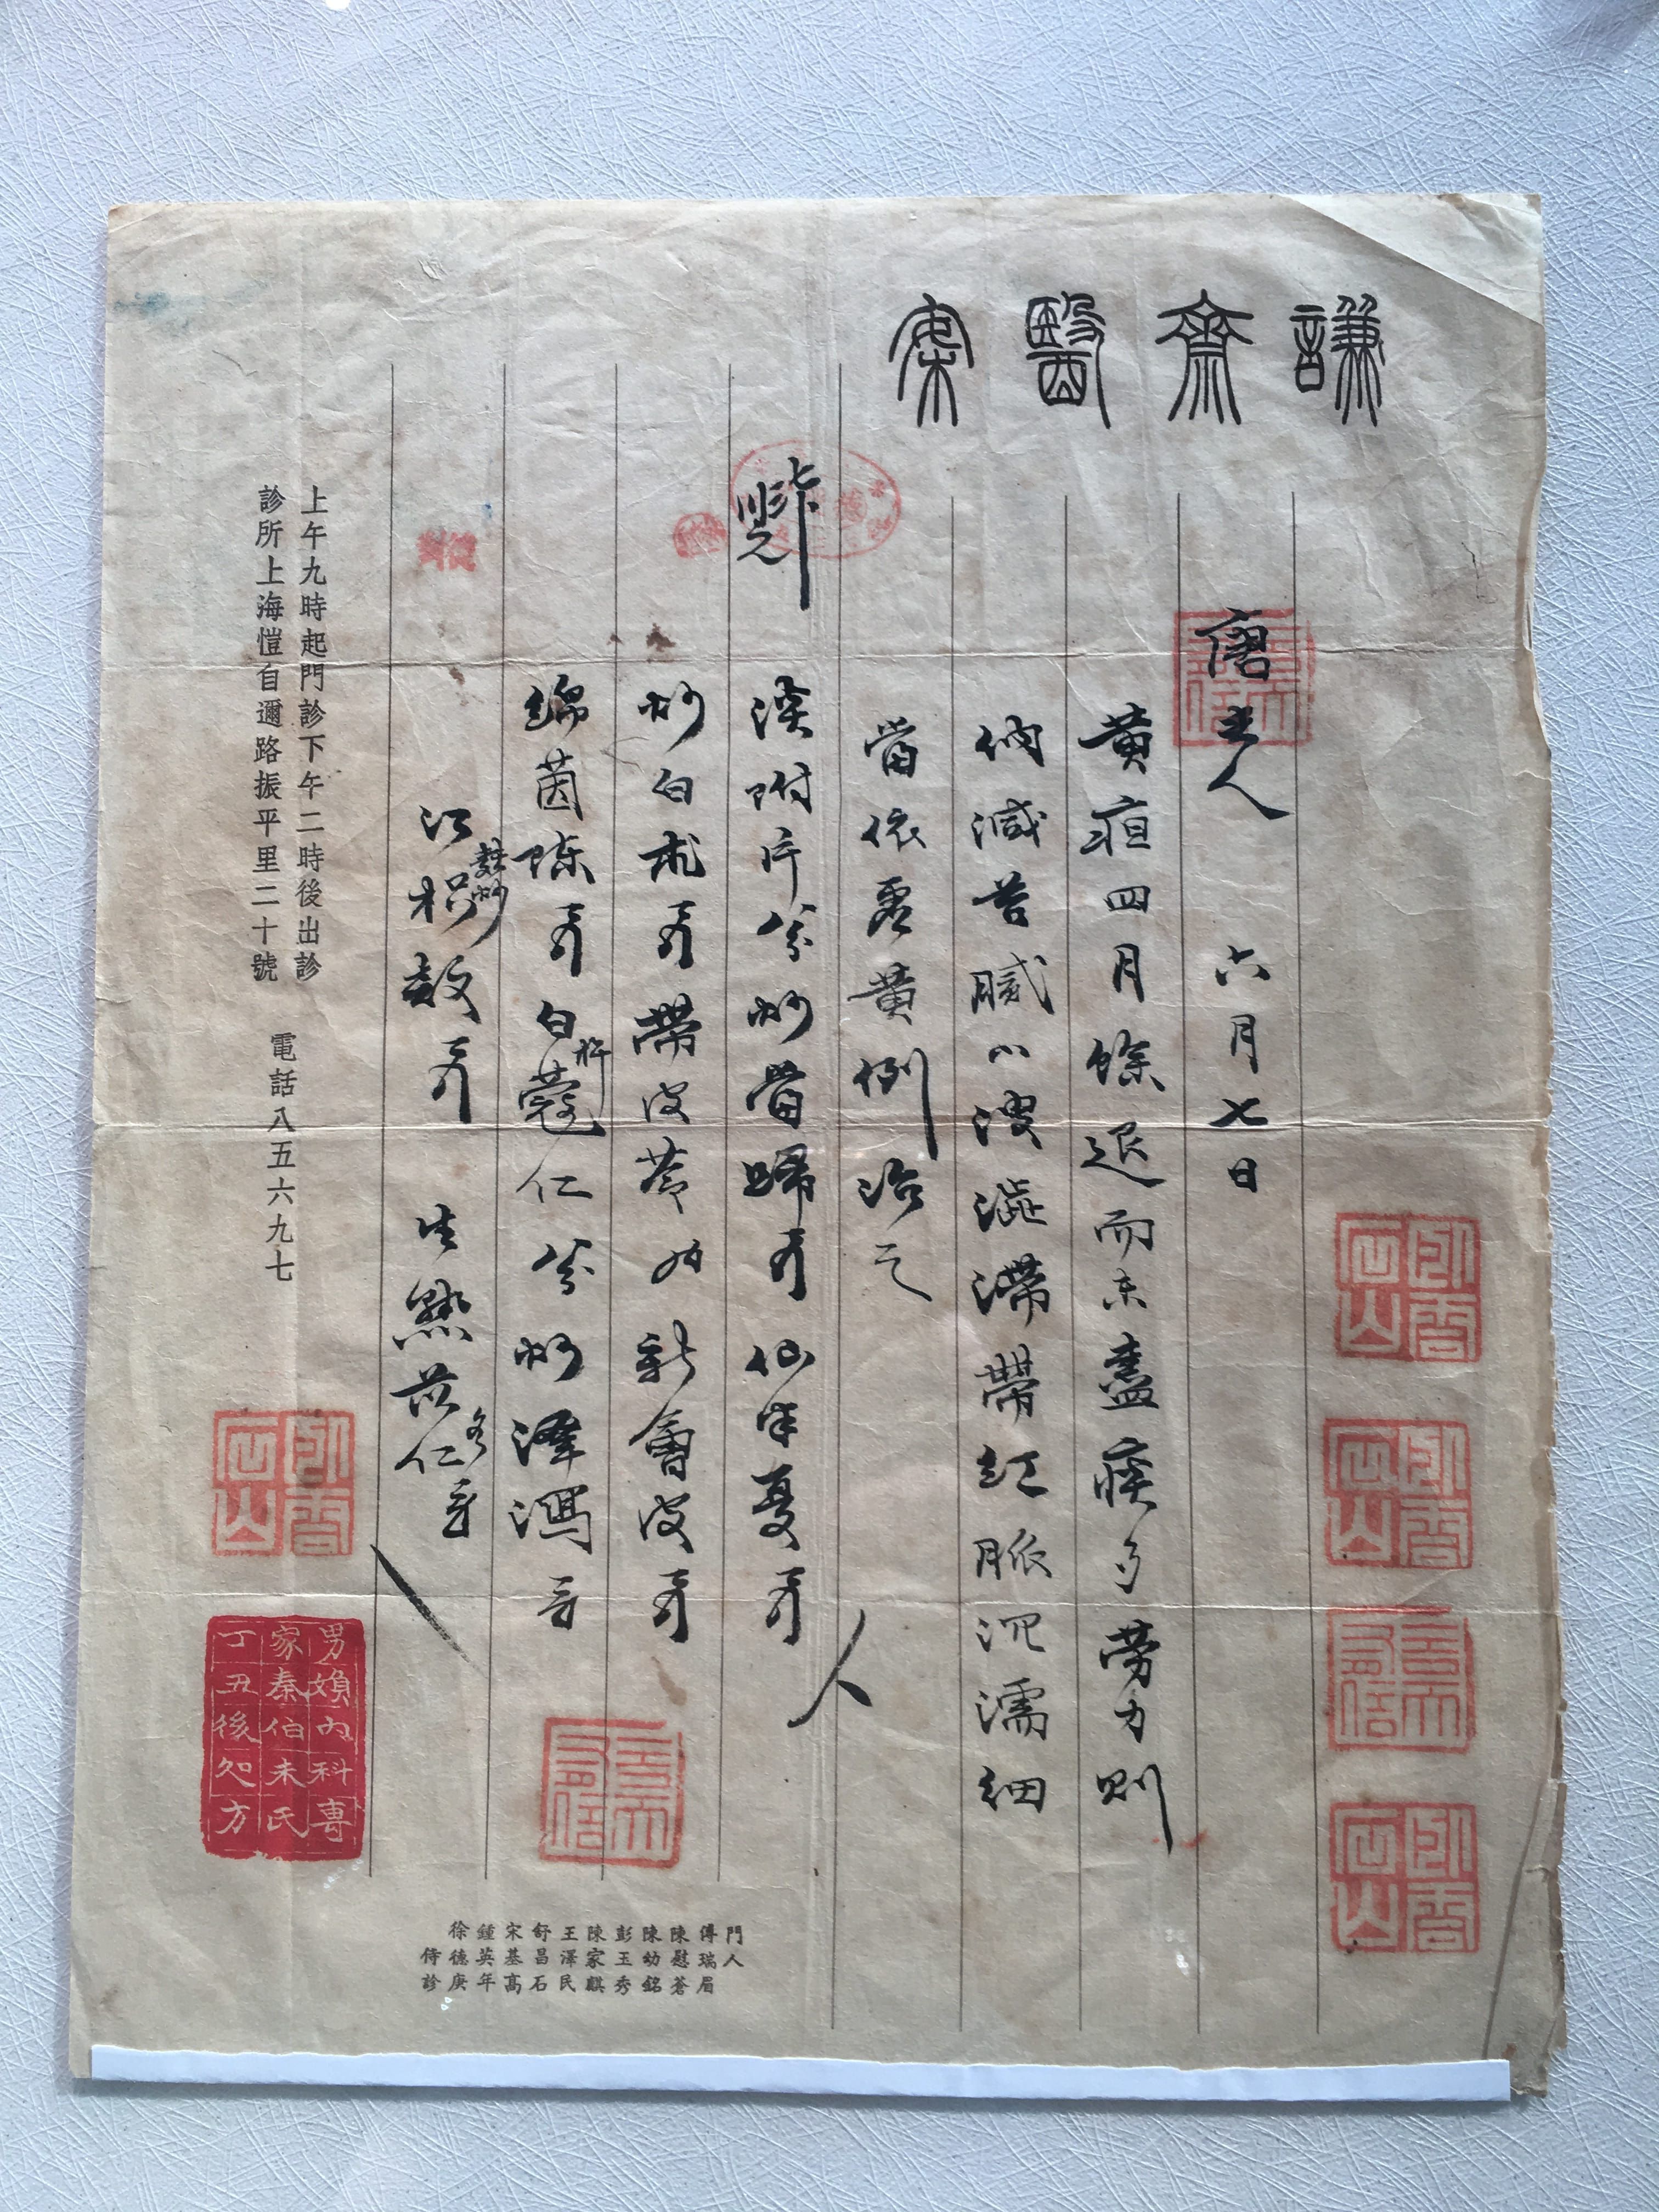 謙齋醫案
唐夫人 六月七日
黃疸四月餘退而未盡痰多勞力則
納減苔膩小溲澁滯帶紅脈沉濡細
當依虛黃例治之
淡附片 炒當歸 仙半夏
炒白朮 帶皮苓 新會皮
綿茵陳 白蔻仁 炒澤瀉
杵
江枳殼 生熟苡仁
麩炒
各
上午九時起門診下午二時後出診
診所上海愷自邇路振平里二十號 電話八五六九七
男婦內科專
家秦伯未氏
丁丑後処方
門人
傅瑞眉
陳慰蒼
陳幼銘
彭玉秀
陳家騏
王澤民
舒昌石
宋基高
鍾英年
徐德庚
侍診